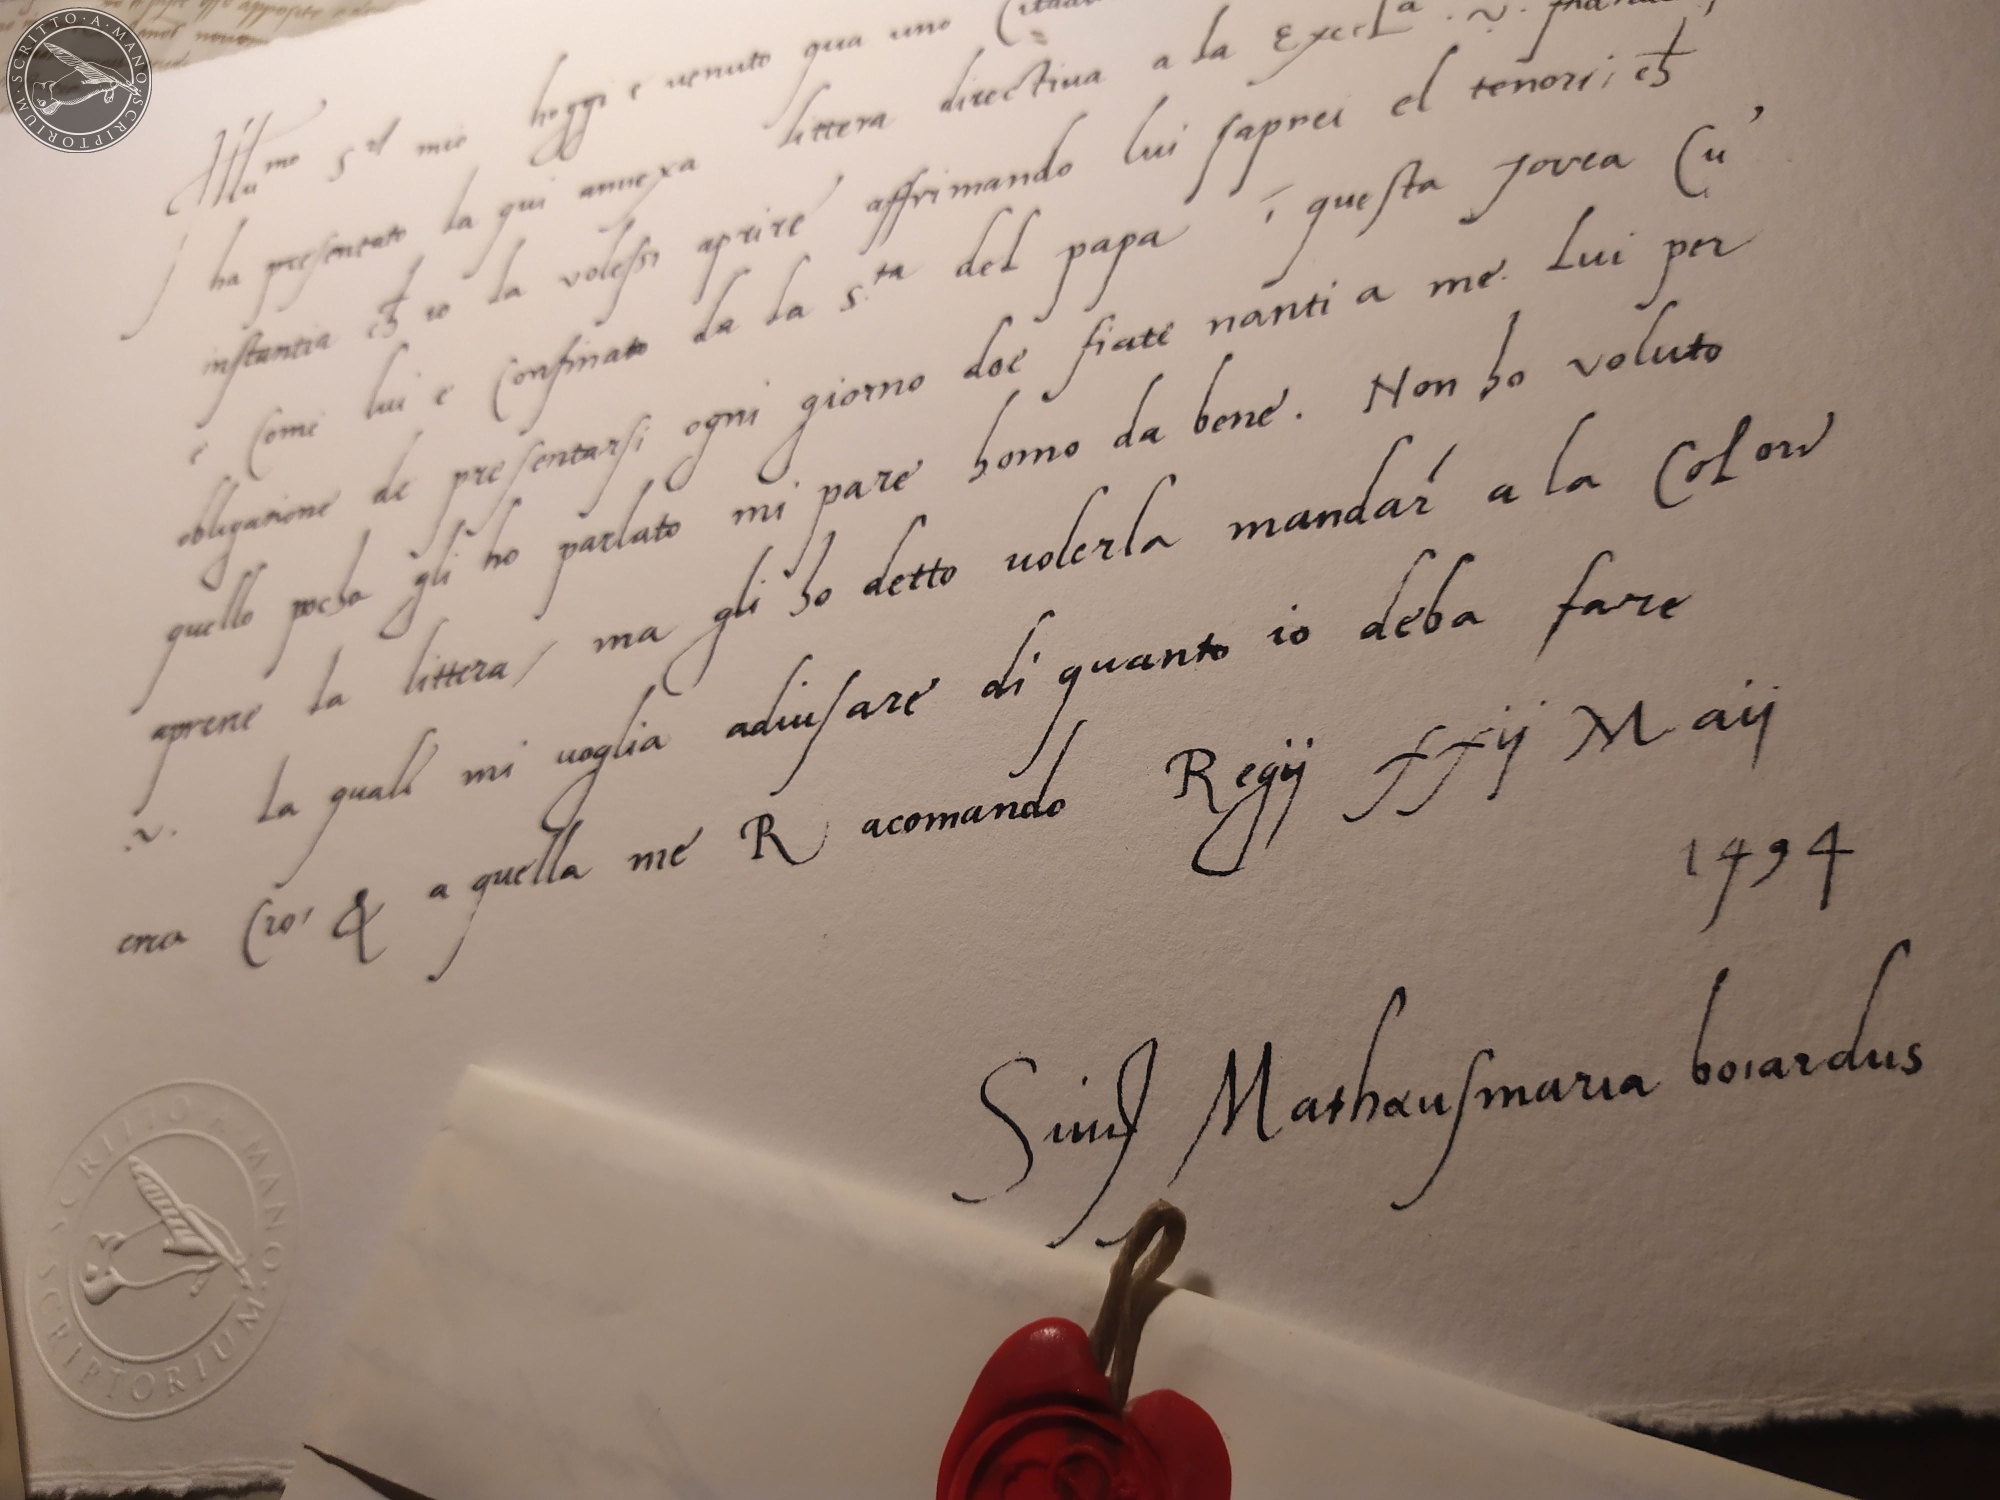 SCRITTO · A · MANO · SCRIPTORIUM
Ill.mo S.r mio hoggi e uenuto qua uno
ha presentato la qui annexa littera directiua a la Excel.a . v.
instantia ch io la volessi aprire affrimando lui saprei el tenori; ch
e Come lui e Confinato da la s.ta del papa í questa
obligatione de presentarsi ogni giorno doe fiate nanti a me. Lui per
quello pocho gli ho parlato mi pare homo da bene. Non ho voluto
aprere la littera / ma gli ho detto uolerla mandar' a la
.v. la quali mi uoglia aduisare di quanto io deba fare
erca Cio' & a quella me Racomando Regij Maij
1494
Mathæusmaria boiardus
SCRITTO A MANO SCRIPTORIUM